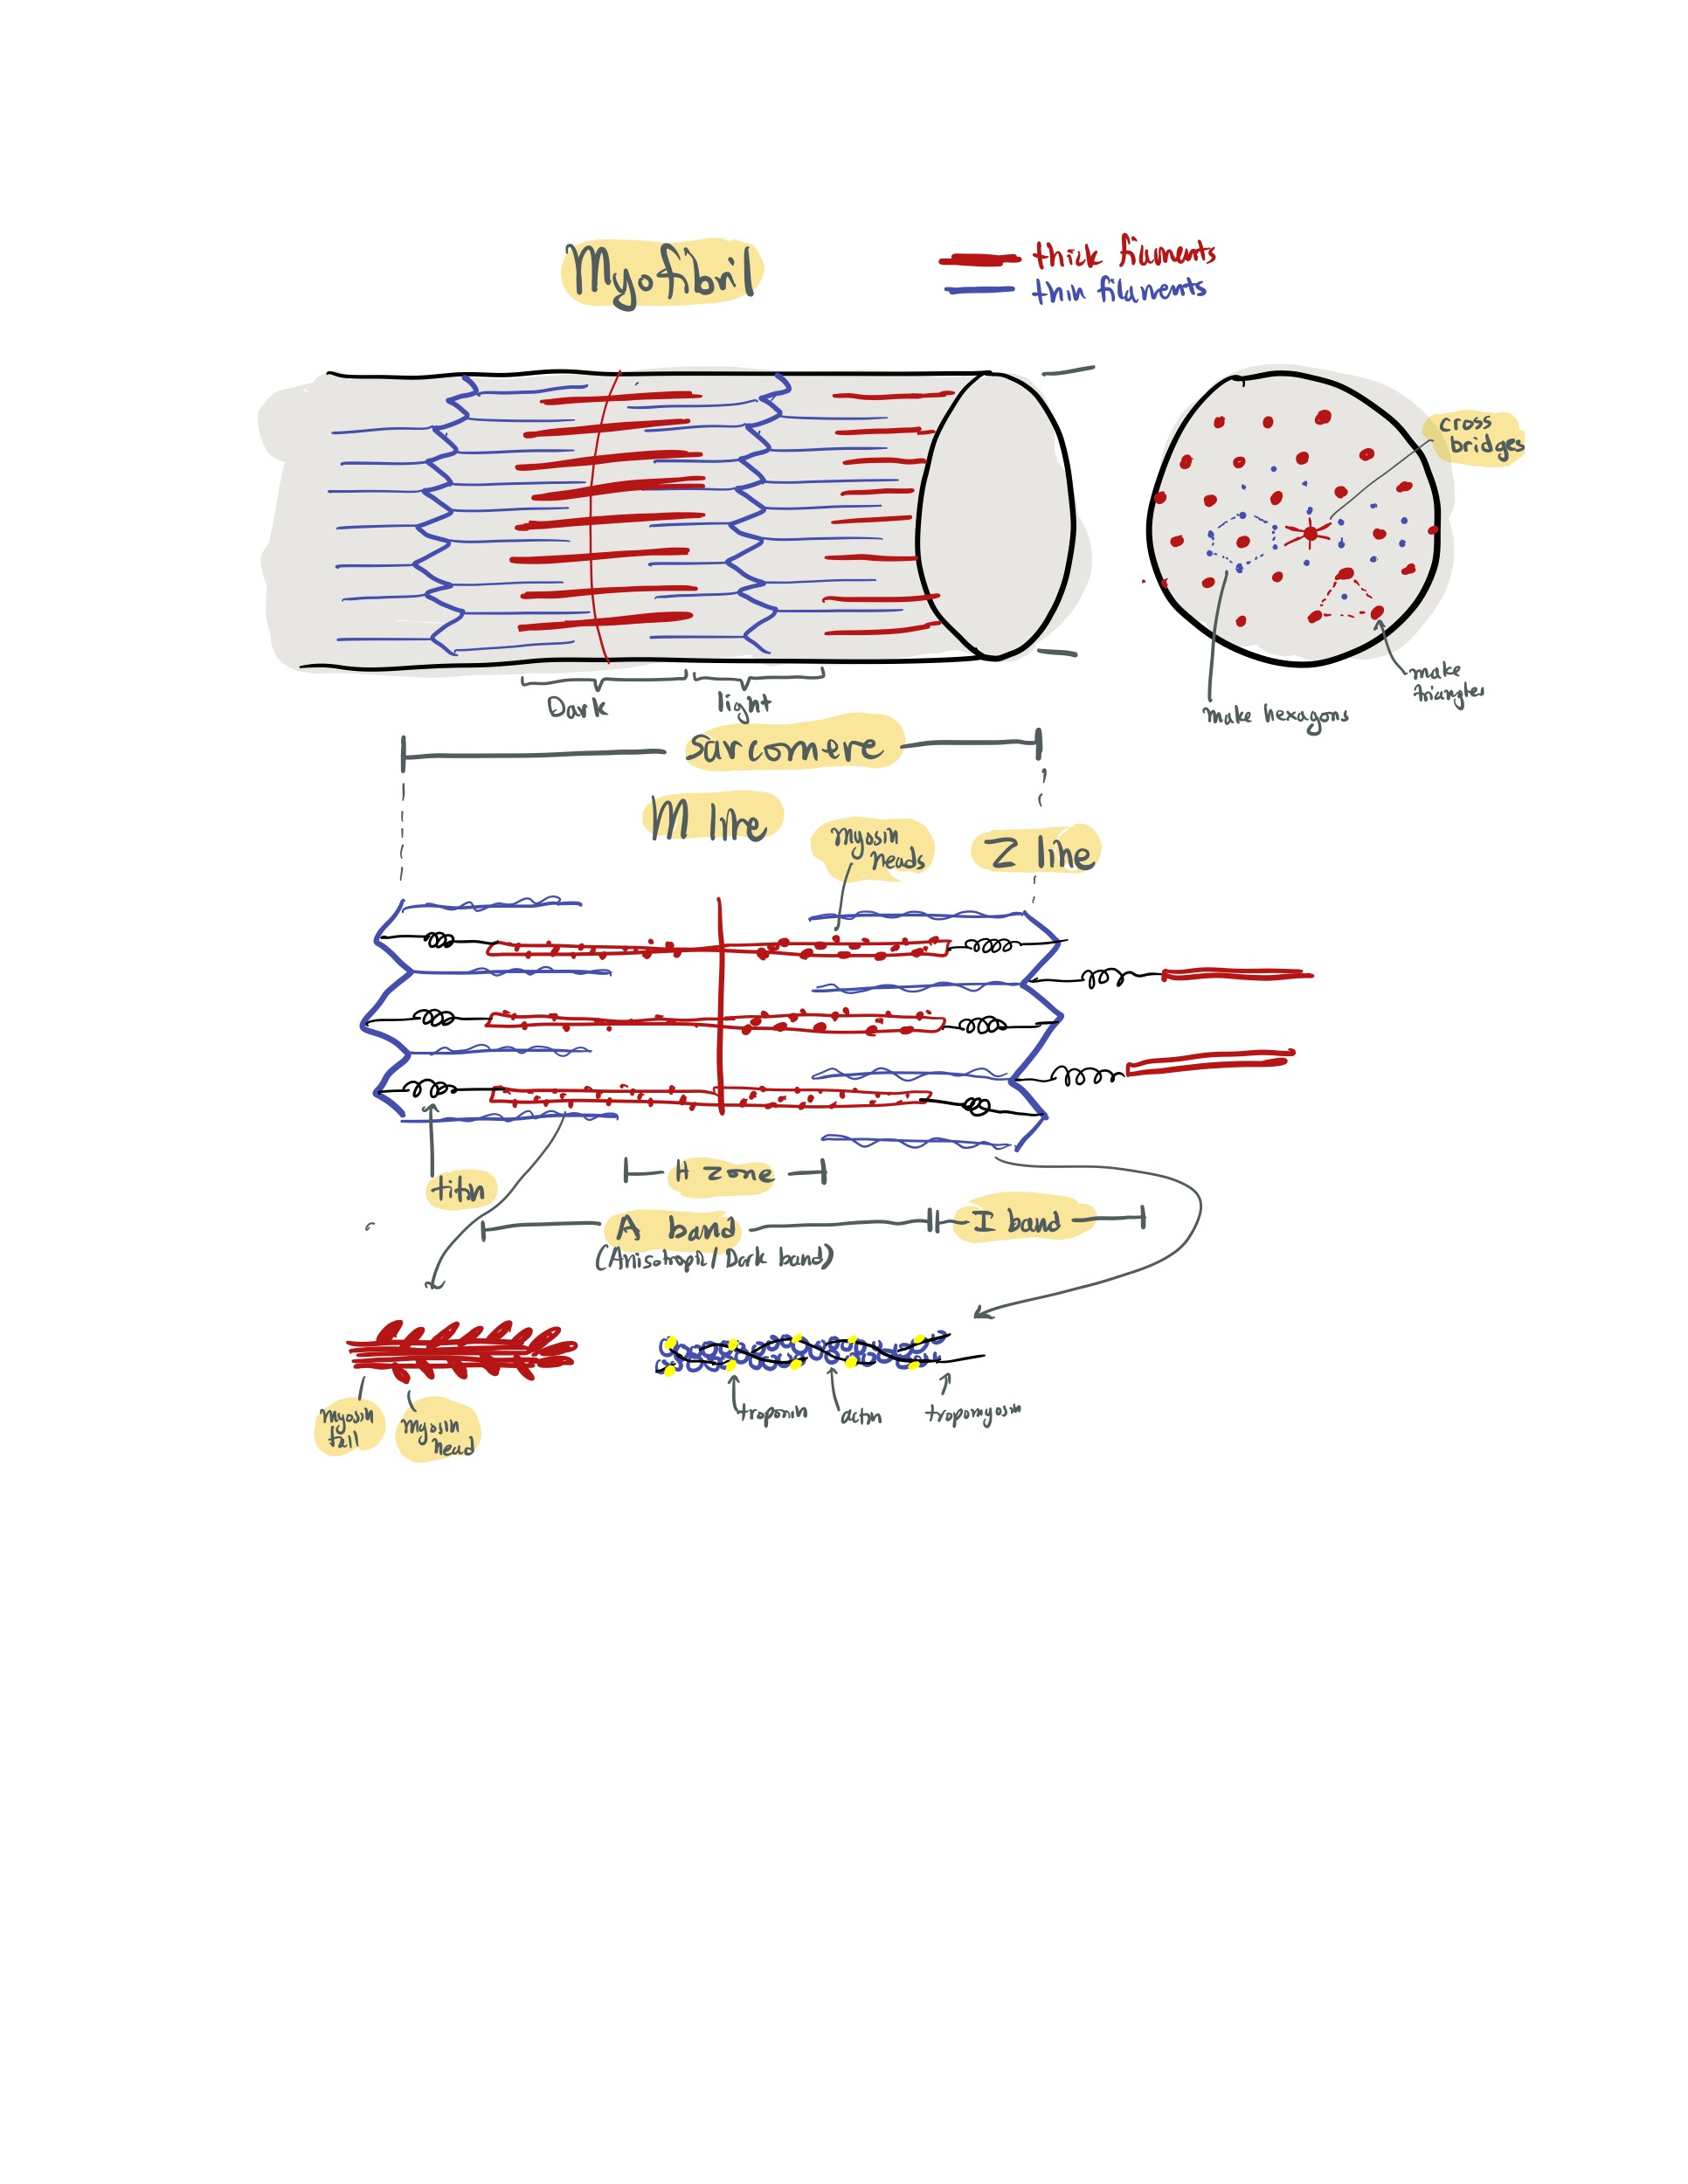 Myofibril
thick filaments
thin filaments
cross
bridges
Dark
light
make hexagons
make
triangles
sarcomere
M line
myosin
heads
Z line
titin
H zone
A band
(Anisotropic/Dark band)
I band
myosin
tail
myosin
head
troponin
actin
tropomyosin